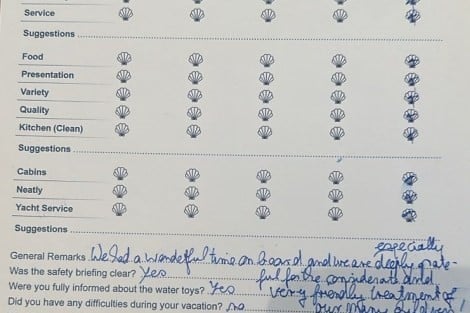 Service
Suggestions
Food
Presentation
Variety
Quality
Kitchen (Clean)
Suggestions
Cabins
Neatly
Yacht Service
Suggestions
especially
General Remarks We had a wondeful time on board and we are deeply grate-
Was the safety briefing clear? Yes ful for the considerate and
Were you fully informed about the water toys? Yes very friendly treatment of
Did you have any difficulties during your vacation? no our many children